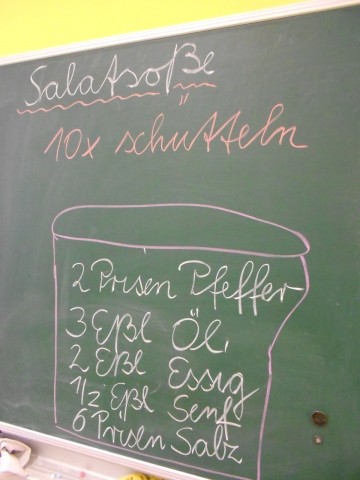 Salatsoße
10x schütteln
2 Prisen Pfeffer
3 Eßl Öl
2 Eßl Essig
1/2 Eßl Senf
6 Prisen Salz